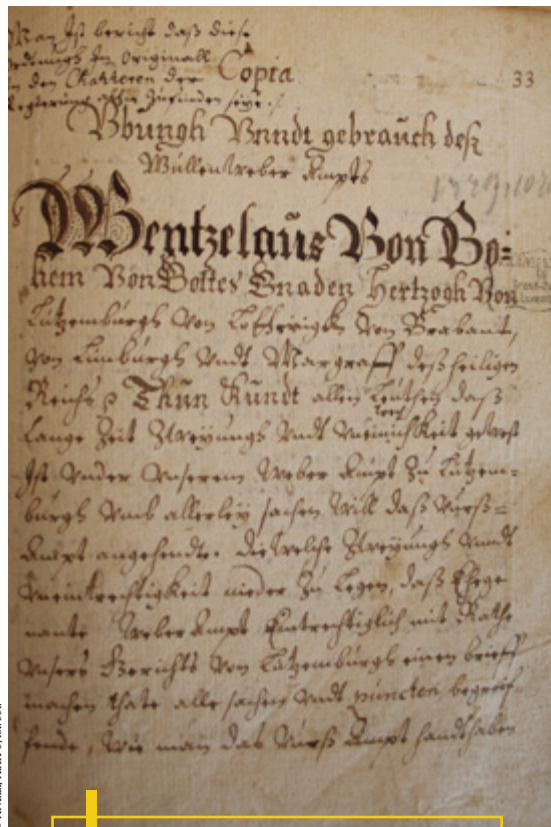 Man Ist bericht daß diese
ordtnungh In Originall
in den Chartren der
Regierung alhie zu finden seye.
Copia
33
Vbungh Vnndt gebrauch deß
Wullenweber Ampts
Wentzelaus Von Bo=
hem Von Gottes Gnaden Hertzogh Von
Lutzemburgh Von Lotherigh Von Brabant,
Von Limburgh Vndt Margraff deß heiligen
Reichs Thun Kundt allen Leuthen daß
Lange Zeit Zweyungh Vndt Vneinichkeit gewest
Ist Vnder Vnserem Weber Ampt Zu Lutzem=
burgh Vmb allerley sachen Will daß Vurß=
Ampt angehendte. Die welche Zweyungh Vnndt
Vneintrechtigkeit nieder Zu Legen, daß Ehege
nante Weber Ampt Eintrechtiglich mit Rathe
Vnsers Gerichts Von Lutzemburgh einen brieff
machen thate alle sachen Vndt puncten begreif
fende, Wie man das Vurß Ampt handthaben